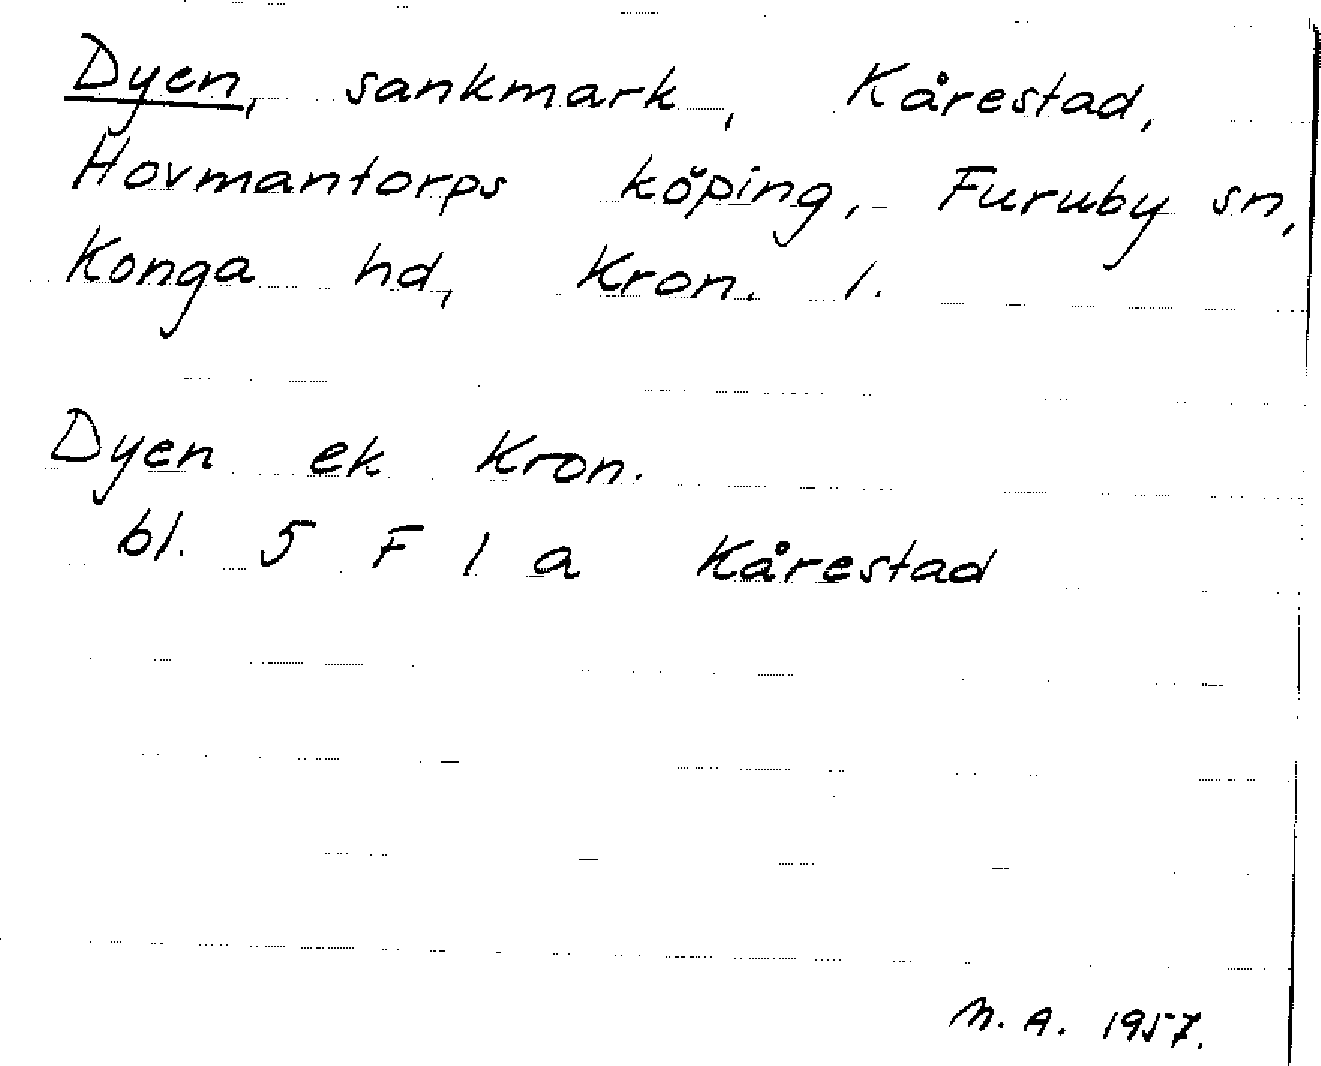 Dyen, sankmark, Kårestad,
Hovmantorps köping, Furuby sn,
Konga hd, Kron. l.
Dyen ek Kron.
bl. 5 F 1 a Kårestad
M. A. 1957.